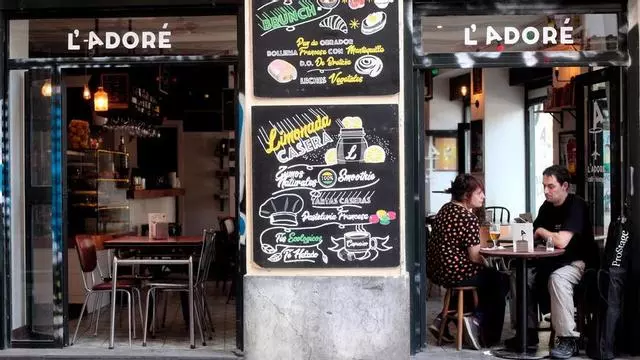 L'ADORÉ
BRUNCH
Pan de OBRADOR
BOLLERIA Francesa CON Mantequilla
D.O. De Bretaña
LECHES Vegetales
Limonada
CASERA
Zumos
Naturales
100%
Smoothie
TARTAS CASERAS
Pasteleria Francesa
Tés Ecologicos
Té Helado
L'ADORÉ
L'ADORÉ
ProStage